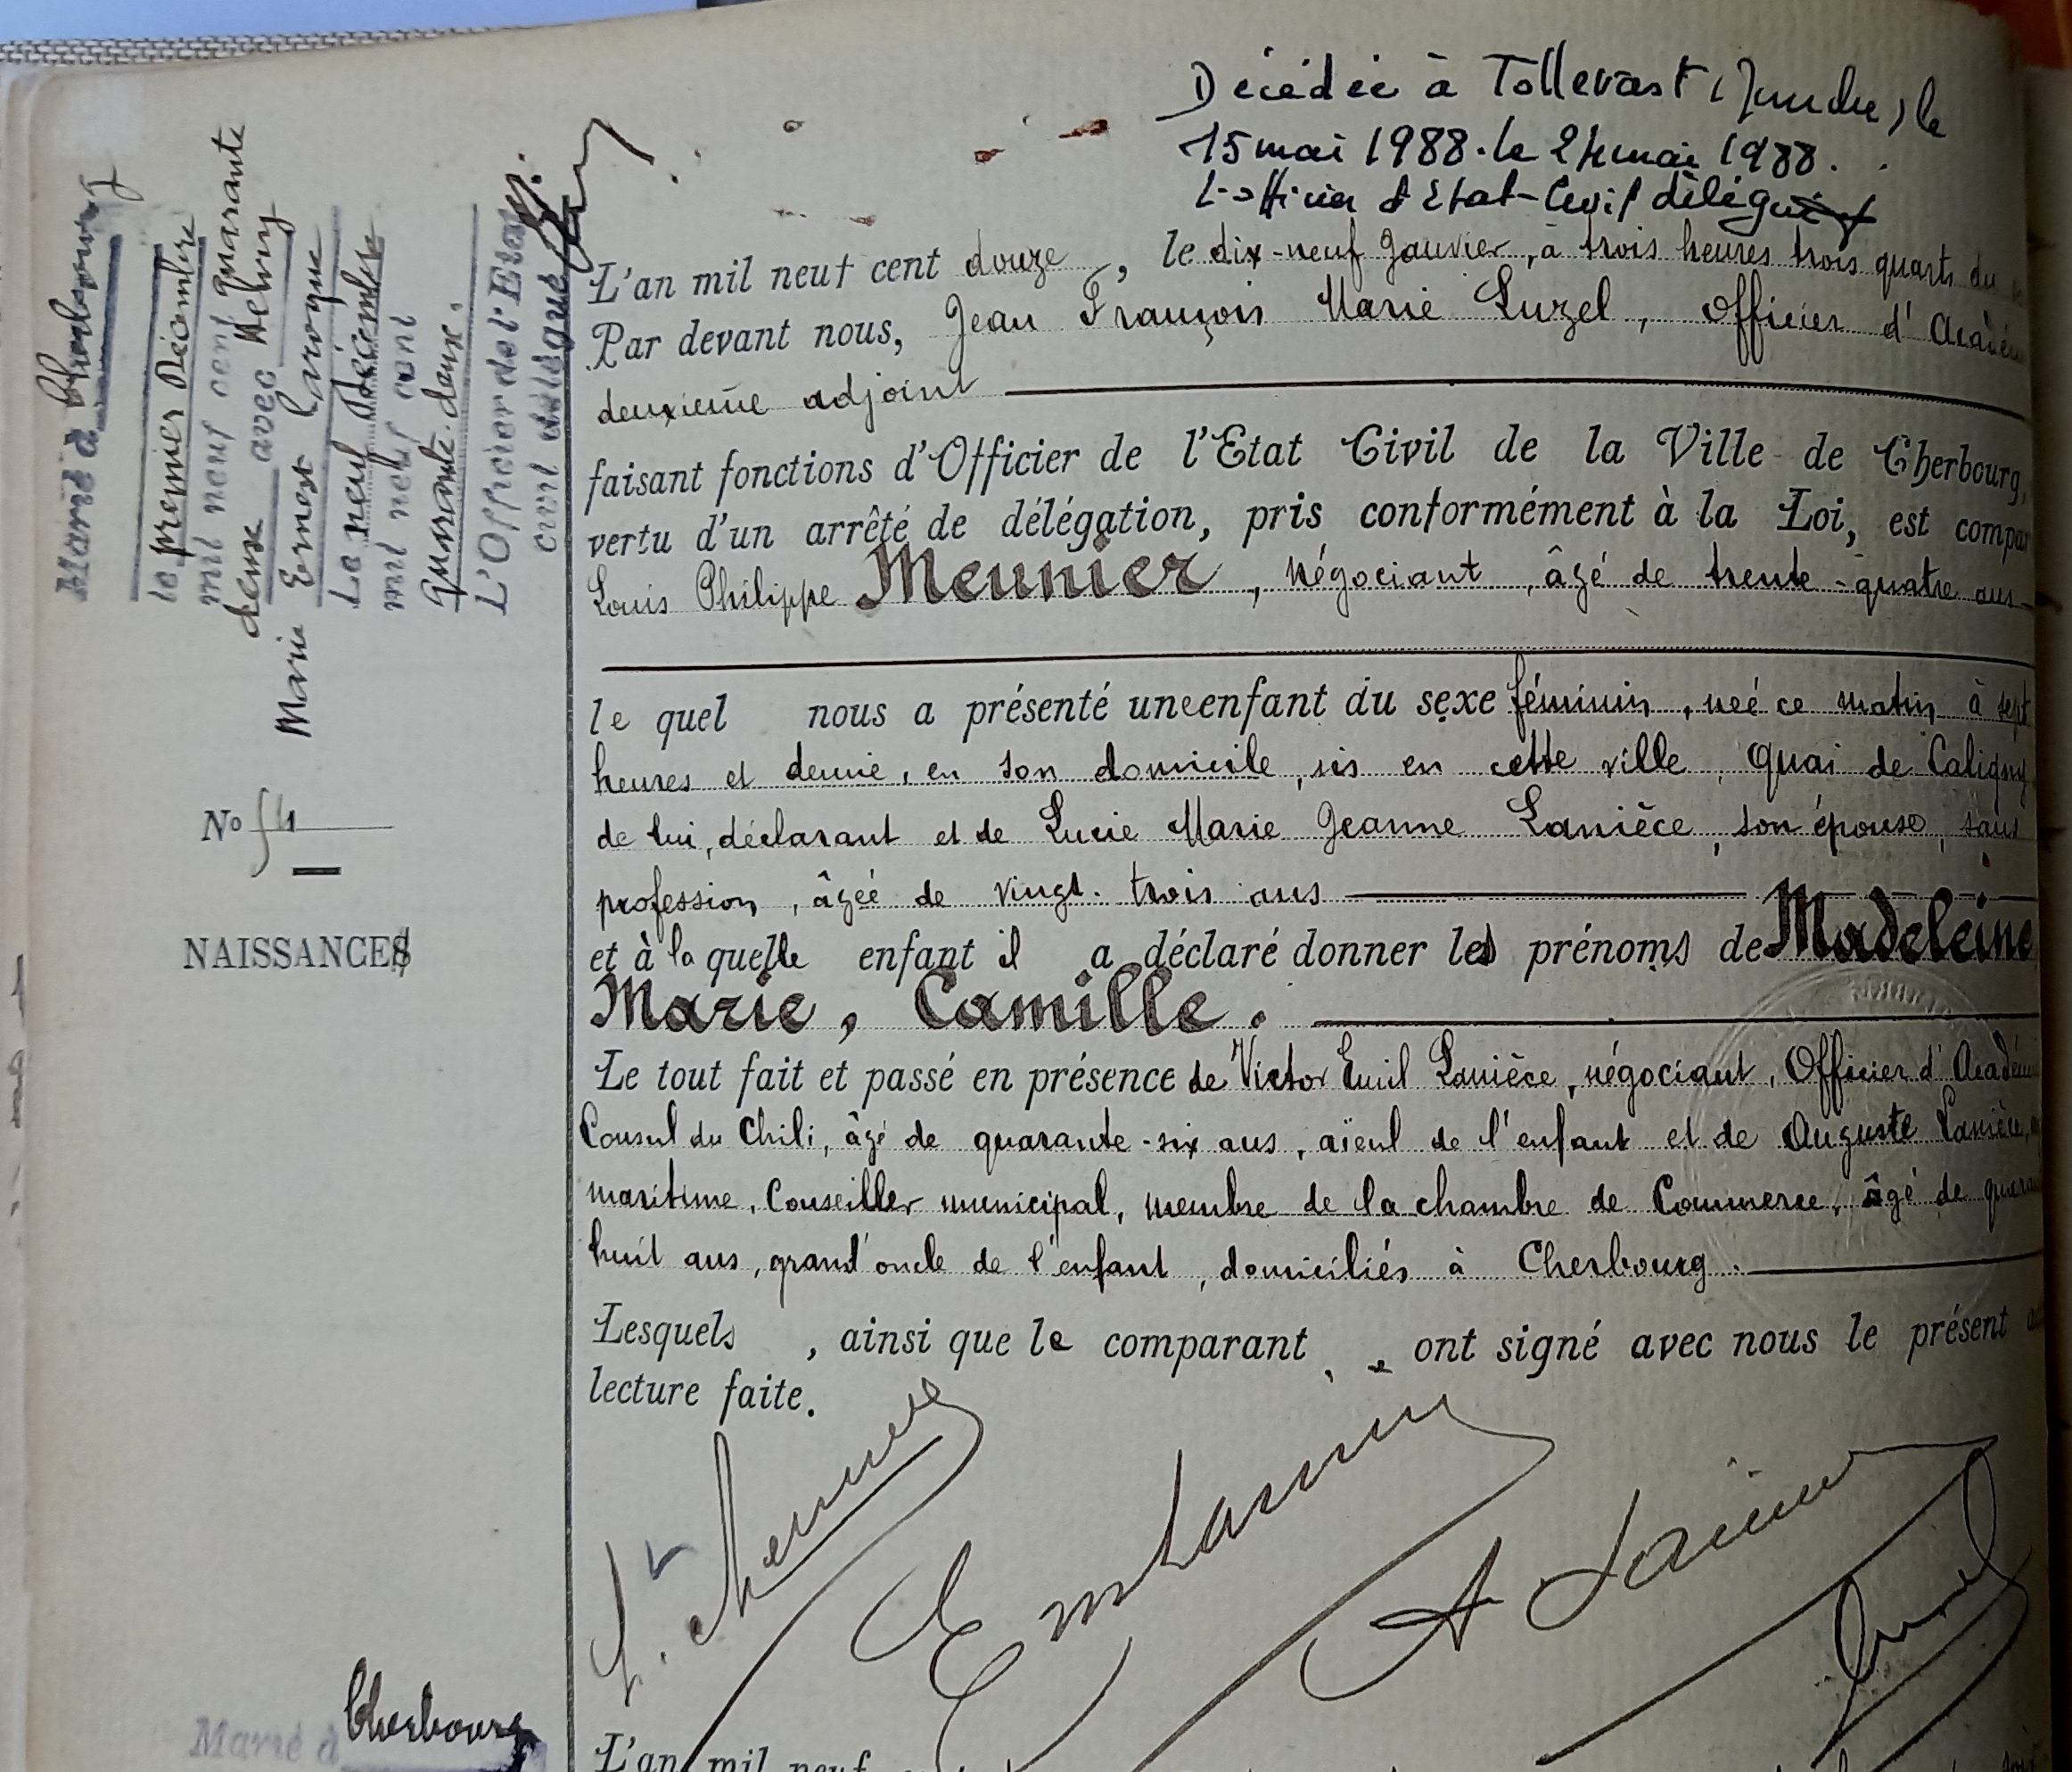 Décédée à Tollevast (Manche) le
15 mai 1988. le 24 mai 1988.
L'officier d'Etat-Civil délégué
Marié à Cherbourg
le premier Décembre
mil neuf cent quarante
deux avec Helwig
Marie Ernest Laroque
Le neuf Décembre
mil neuf cent
quarante-deux.
L'Officier de l'Etat
civil délégué
L'an mil neuf cent douze, le dix-neuf Janvier, à trois heures trois quarts du
Par devant nous, Jean François Marie Luzel, Officier d'
deuxième adjoint
faisant fonctions d'Officier de l'Etat Civil de la Ville de Cherbourg,
vertu d'un arrêté de délégation, pris conformément à la Loi, est compar
Louis Philippe Meunier, négociant, âgé de trente-quatre ans
le quel nous a présenté une enfant du sexe féminin, neé ce matin à sept
heures et demie, en son domicile, sis en cette ville, Quai de Caligny
de lui, déclarant et de Lucie Marie Jeanne Lanièce, son épouse, sans
profession, âgée de vingt-trois ans
et à la quelle enfant il a déclaré donner les prénoms de Madeleine
Marie, Camille.
Le tout fait et passé en présence de Victor Emil Lanièce, négociant, Officier d'Académi
Consul du Chili, âgé de quarante-six ans, aïeul de l'enfant et de Auguste Lanièce,
maritime, Conseiller municipal, membre de la chambre de Commerce, âgé de quara
huit ans, grand'oncle de l'enfant, domiciliés à Cherbourg.
Lesquels, ainsi que le comparant, ont signé avec nous le présent
lecture faite.
No 54
NAISSANCES
L. Meunier
Em Lanièce
A Lanièce
Luzel
Marié à Cherbourg
L'an mil neuf